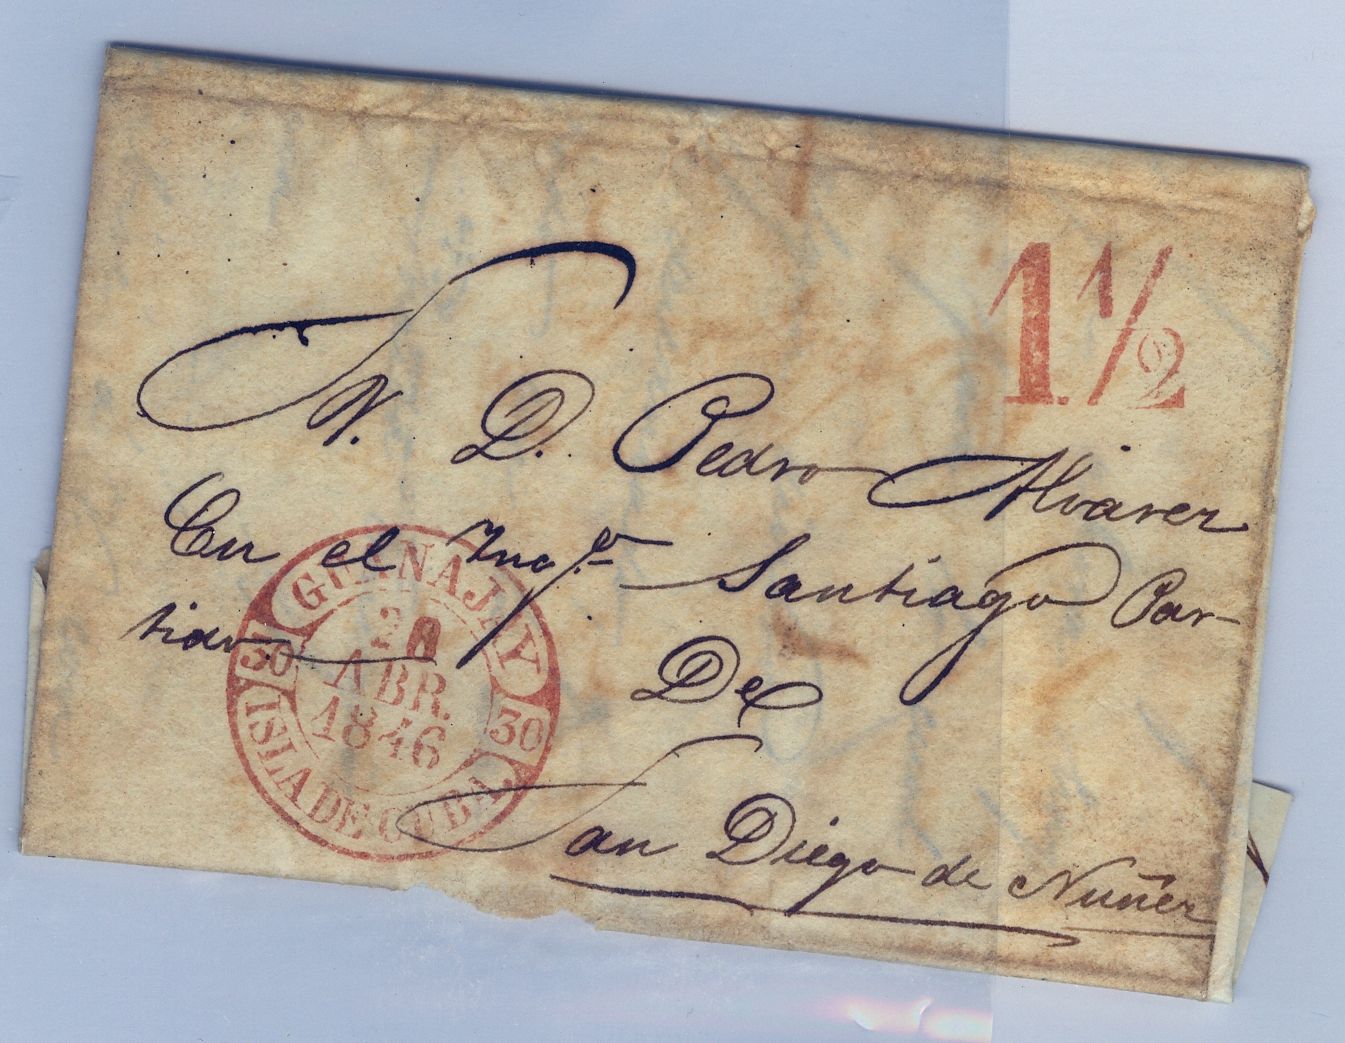 1 1/2
S. D. Pedro Alvarez
En el Yng.º Santiago Par-
tido
De
San Diego de Nuñez
GUANAJAY
30 30
ABR.
1846
ISLA DE CUBA.